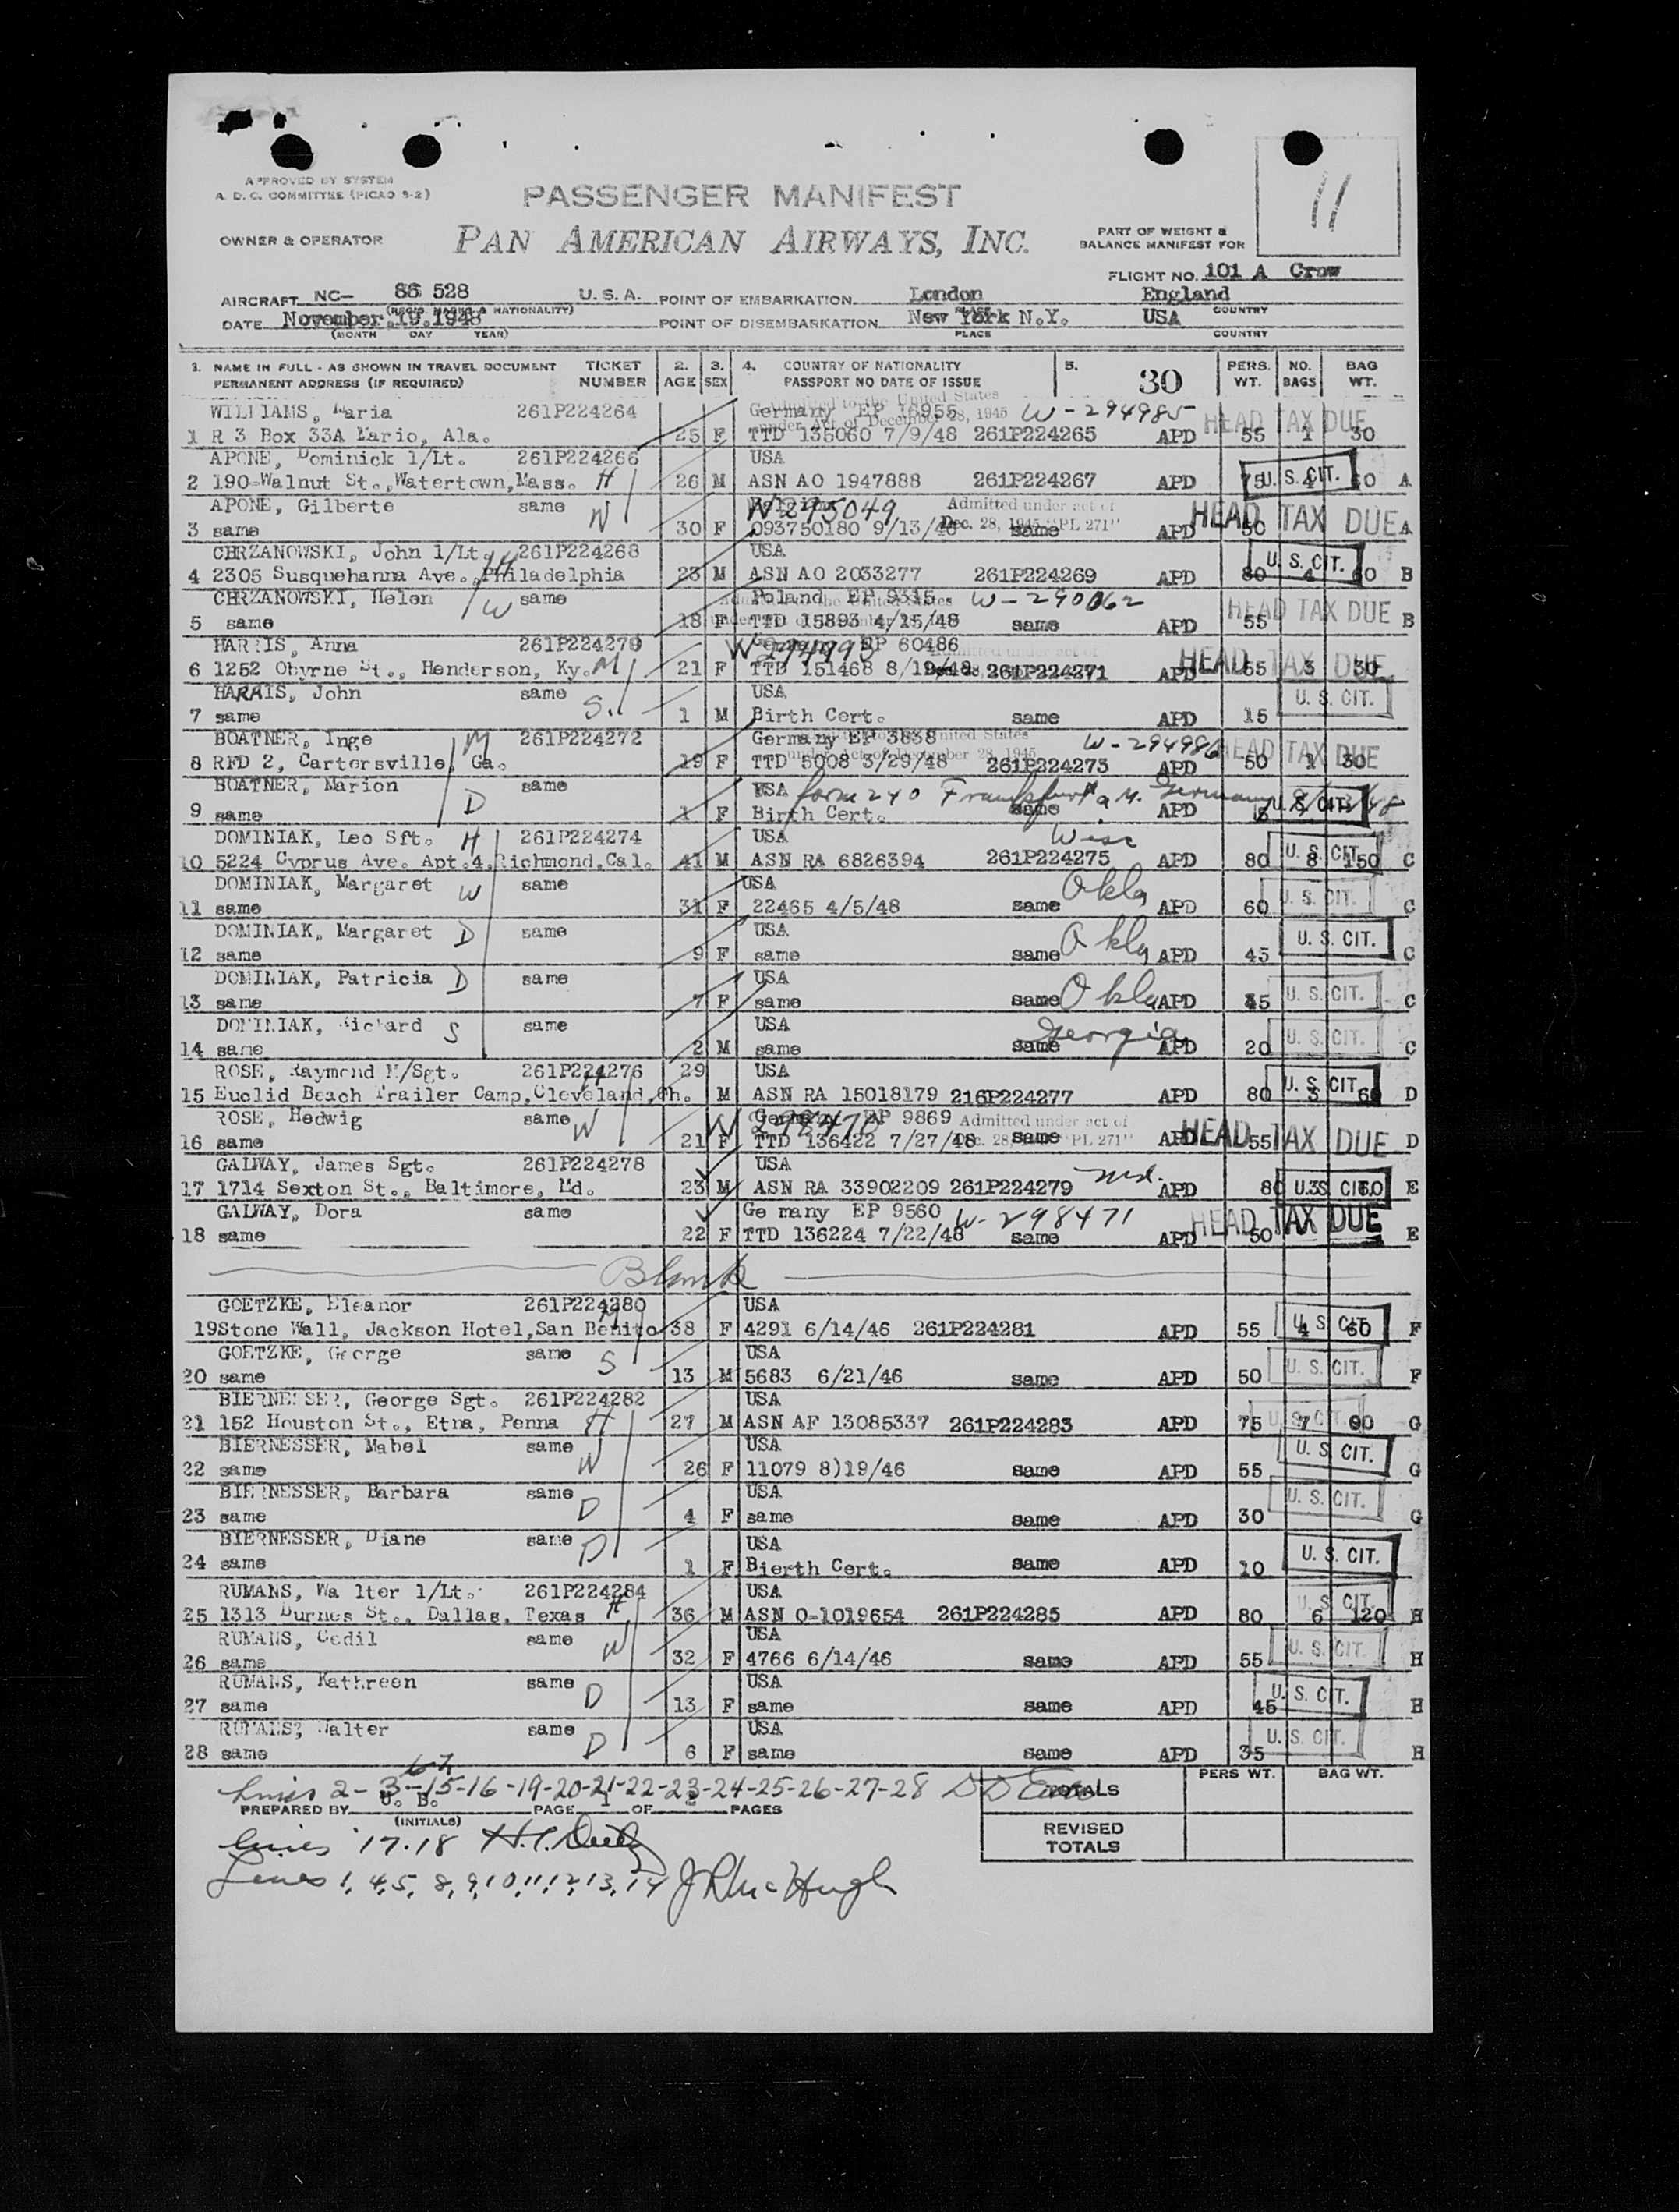 11
APPROVED BY SYSTEM
A. D. C. COMMITTEE (PICAO 9-2)
PASSENGER MANIFEST
OWNER & OPERATOR PAN AMERICAN AIRWAYS, INC.
PART OF WEIGHT &
BALANCE MANIFEST FOR
FLIGHT NO. 101 A Crow
AIRCRAFT NC- 86 528 U.S.A. POINT OF EMBARKATION London England
(REGIS. MARKS & NATIONALITY) PLACE COUNTRY
DATE November 19.1948 POINT OF DISEMBARKATION New York N.Y. USA
(MONTH DAY YEAR) PLACE COUNTRY
1. NAME IN FULL - AS SHOWN IN TRAVEL DOCUMENT TICKET 2. 3. 4. COUNTRY OF NATIONALITY 5. 30 PERS. NO. BAG
PERMANENT ADDRESS (IF REQUIRED) NUMBER AGE SEX PASSPORT NO DATE OF ISSUE WT. BAGS WT.
WILLIAMS, Maria 261P224264 Germany EP 16955 W-294985 HEAD TAX DUE
Admitted to the United States under Act of December 28, 1945
1 R 3 Box 33A Mario, Ala. 25 F TTD 135060 7/9/48 261P224265 APD 55 1 30
APONE, Dominick 1/Lt. 261P224266 USA
2 190 Walnut St., Watertown, Mass. H 26 M ASN AO 1947888 261P224267 APD 75 U.S. CIT. 4 60 A
APONE, Gilberte same W W295049 Admitted under act of
3 same 30 F 093750180 9/13/48 Dec. 28, 1945 "PL 271" same APD 50 HEAD TAX DUE A
CHRZANOWSKI, John 1/Lt. H 261P224268 USA
4 2305 Susquehanna Ave., Philadelphia 23 M ASN AO 2033277 261P224269 APD 80 U.S. CIT. 4 60 B
CHRZANOWSKI, Helen W same Poland EP 9315 W-290062
5 same 18 F TTD 15893 4/15/48 same APD 55 HEAD TAX DUE B
HARRIS, Anna 261P224270 EP 60486 W294993 Admitted under act of
6 1252 Obyrne St., Henderson, Ky. M 21 F TTD 151468 8/19/48 261P224271 APD HEAD TAX DUE 55 3 30
HARRIS, John same USA
7 same S. 1 M Birth Cert. same APD 15 U. S. CIT.
BOATNER, Inge M 261P224272 Germany EP 3838 W-294986
8 RFD 2, Cartersville, Ga. 19 F TTD 5008 3/29/48 261P224273 APD 50 HEAD TAX DUE 1 30
BOATNER, Marion same USA form 240 Frankfurt a M. Germany
9 same D 1 F Birth Cert. same APD U.S. CIT.
DOMINIAK, Leo Sft. H 261P224274 USA Wisc
10 5224 Cyprus Ave. Apt.4, Richmond, Cal. 41 M ASN RA 6826394 261P224275 APD 80 U. S. CIT. 8 150 C
DOMINIAK, Margaret W same USA Okla
11 same 31 F 22465 4/5/48 same APD 60 U. S. CIT. C
DOMINIAK, Margaret D same USA Okla
12 same 9 F same same APD 45 U. S. CIT. C
DOMINIAK, Patricia D same USA Okla
13 same 7 F same same APD 45 U. S. CIT. C
DOMINIAK, Richard S same USA Georgia
14 same 2 M same same APD 20 U. S. CIT. C
ROSE, Raymond M/Sgt. H 261P224276 29 USA
15 Euclid Beach Trailer Camp, Cleveland, Oh. M ASN RA 15018179 216P224277 APD 80 U. S. CIT. 3 60 D
ROSE, Hedwig same W W298470 Germany EP 9869 Admitted under act of
16 same 21 F TTD 136422 7/27/48 Dec. 28, same "PL 271" APD 55 HEAD TAX DUE D
GALWAY, James Sgt. 261P224278 USA
17 1714 Sexton St., Baltimore, Md. 23 M ASN RA 33902209 261P224279 Md. APD 80 U.S. CIT. 3 60 E
GALWAY, Dora same Ge many EP 9560 W-298471
18 same 22 F TTD 136224 7/22/48 same APD 50 HEAD TAX DUE E
Blank
GOETZKE, Eleanor 261P224280 M USA
19 Stone Wall, Jackson Hotel, San Benito 38 F 4291 6/14/46 261P224281 APD 55 U. S. CIT. 4 60 F
GOETZKE, George same USA
20 same S 13 M 5683 6/21/46 same APD 50 U. S. CIT. F
BIERNESSER, George Sgt. 261P224282 USA
21 152 Houston St., Etna, Penna H 27 M ASN AF 13085337 261P224283 APD 75 U. S. CIT. 7 90 G
BIERNESSER, Mabel same USA
22 same W 26 F 11079 8)19/46 same APD 55 U. S. CIT. G
BIERNESSER, Barbara same USA
23 same D 4 F same same APD 30 U. S. CIT. G
BIERNESSER, Diane same USA
24 same D 1 F Bierth Cert. same APD 10 U. S. CIT.
RUMANS, Wa lter 1/Lt. 261P224284 USA
25 1313 Burnes St., Dallas, Texas H 36 M ASN O-1019654 261P224285 APD 80 U. S. CIT. 6 120 H
RUMANS, Cedil same USA
26 same W 32 F 4766 6/14/46 same APD 55 U. S. CIT. H
RUMANS, Kathreen same USA
27 same D 13 F same same APD 45 U. S. CIT. H
RUMANS, Walter same USA
28 same D 6 F same same APD 35 U. S. CIT. H
PERS WT. BAG WT.
6-7
Lines 2-3-15-16-19-20-21-22-23-24-25-26-27-28
TOTALS
PREPARED BY U. B. PAGE 1 OF 2 PAGES
(INITIALS)
REVISED
TOTALS
Lines 17.18
Lines 1, 4, 5, 8, 9, 10, 11, 12, 13, 14 J R McHugh